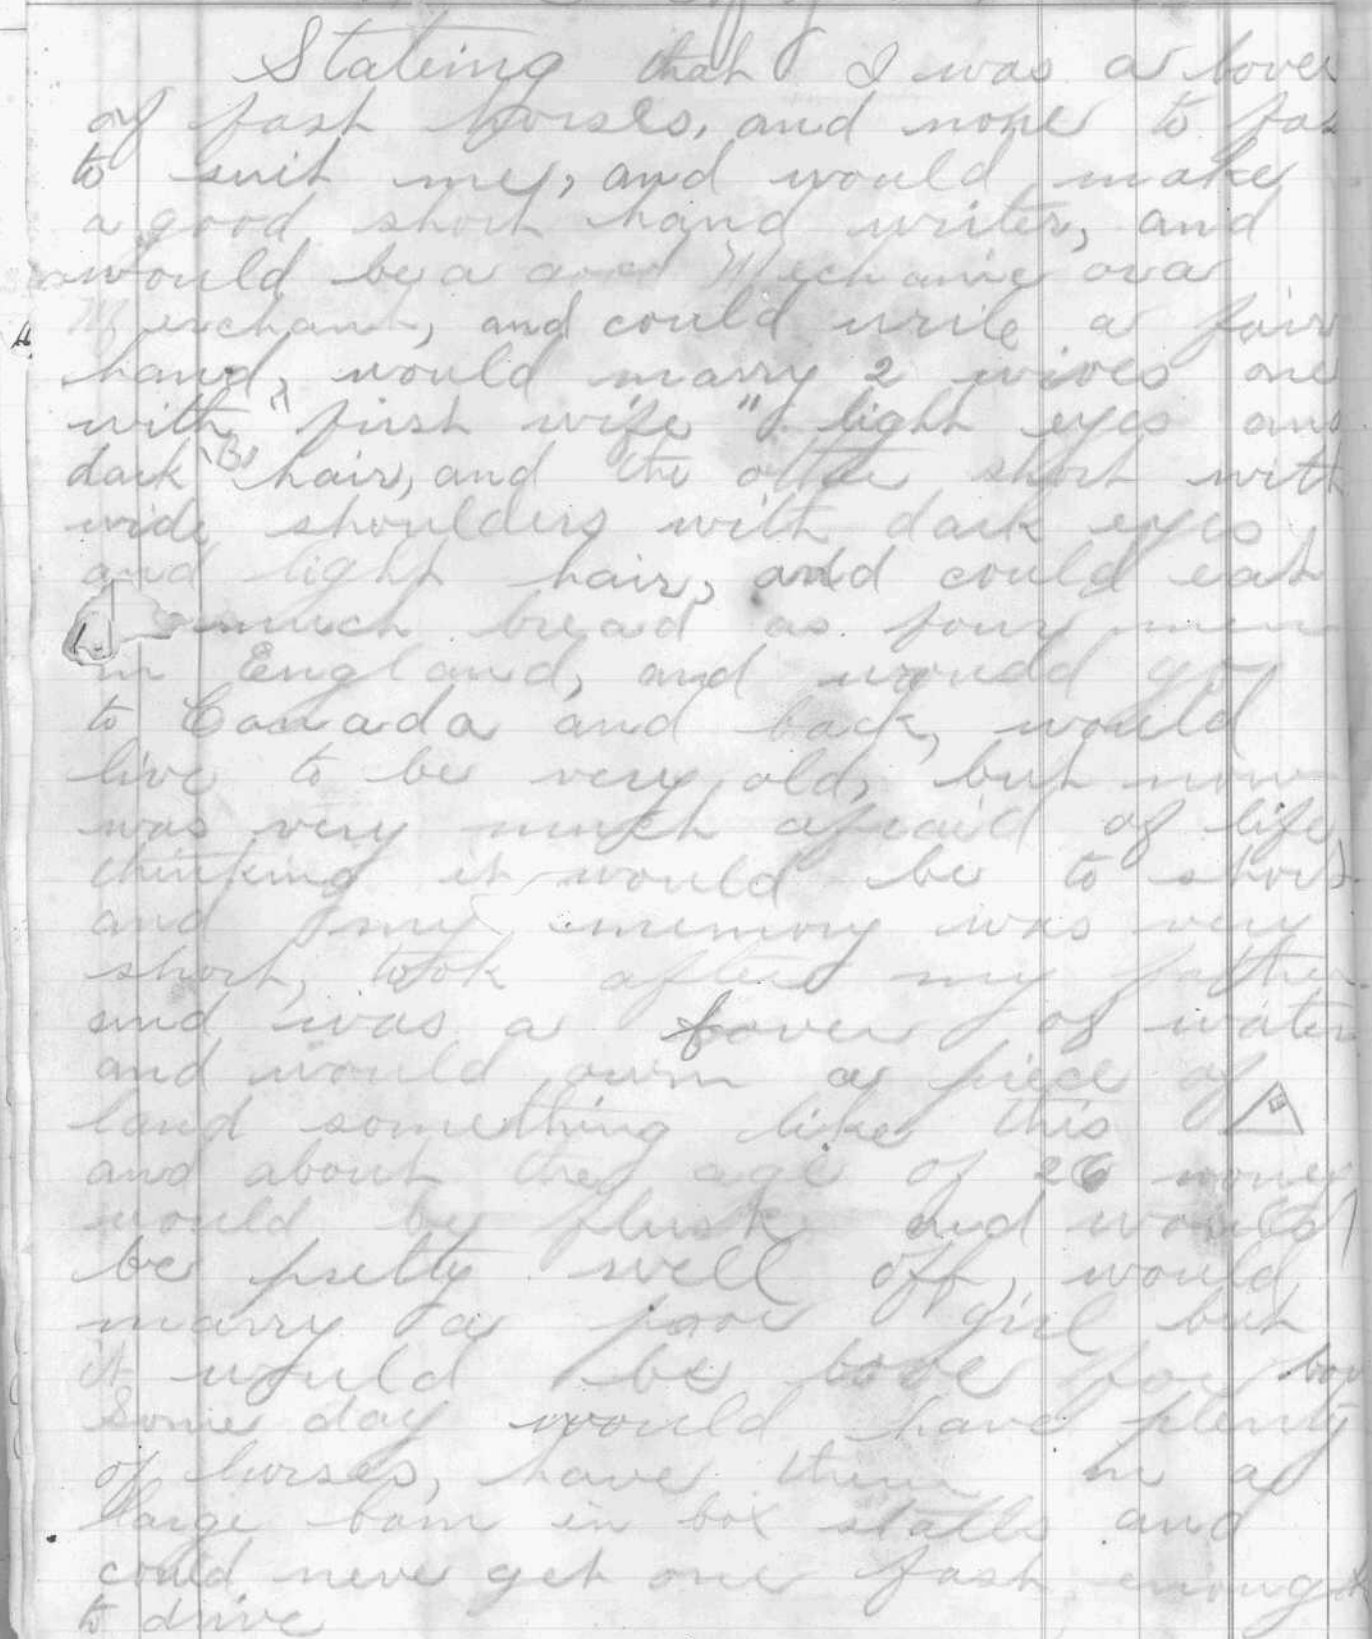 Stateing that I was a lover
of fast horses, and none to fas
to suit me, and would make
a good short hand writer, and
would be a good Mechanic or a
Merchant, and could write a fair
hand, would marry 2 wives one
with "first wife" light eyes and
dark hair, and the other short with
wide shoulders with dark eyes
and light hair, and could eat
as much bread as four men
in England, and would go
to Canada and back, would
live to be very old, but now
was very much afraid of life
thinking it would be to short
and my memory was very
short, took after my father
and was a lover of water
and would own a piece of
land something like this
and about the age of 26 money
would be flush and would
be pretty well off, would
marry a poor girl but
it would be love for
Some day would have plenty
of horses, have them in a
large barn in box stalls and
could never get one fast enough
to drive